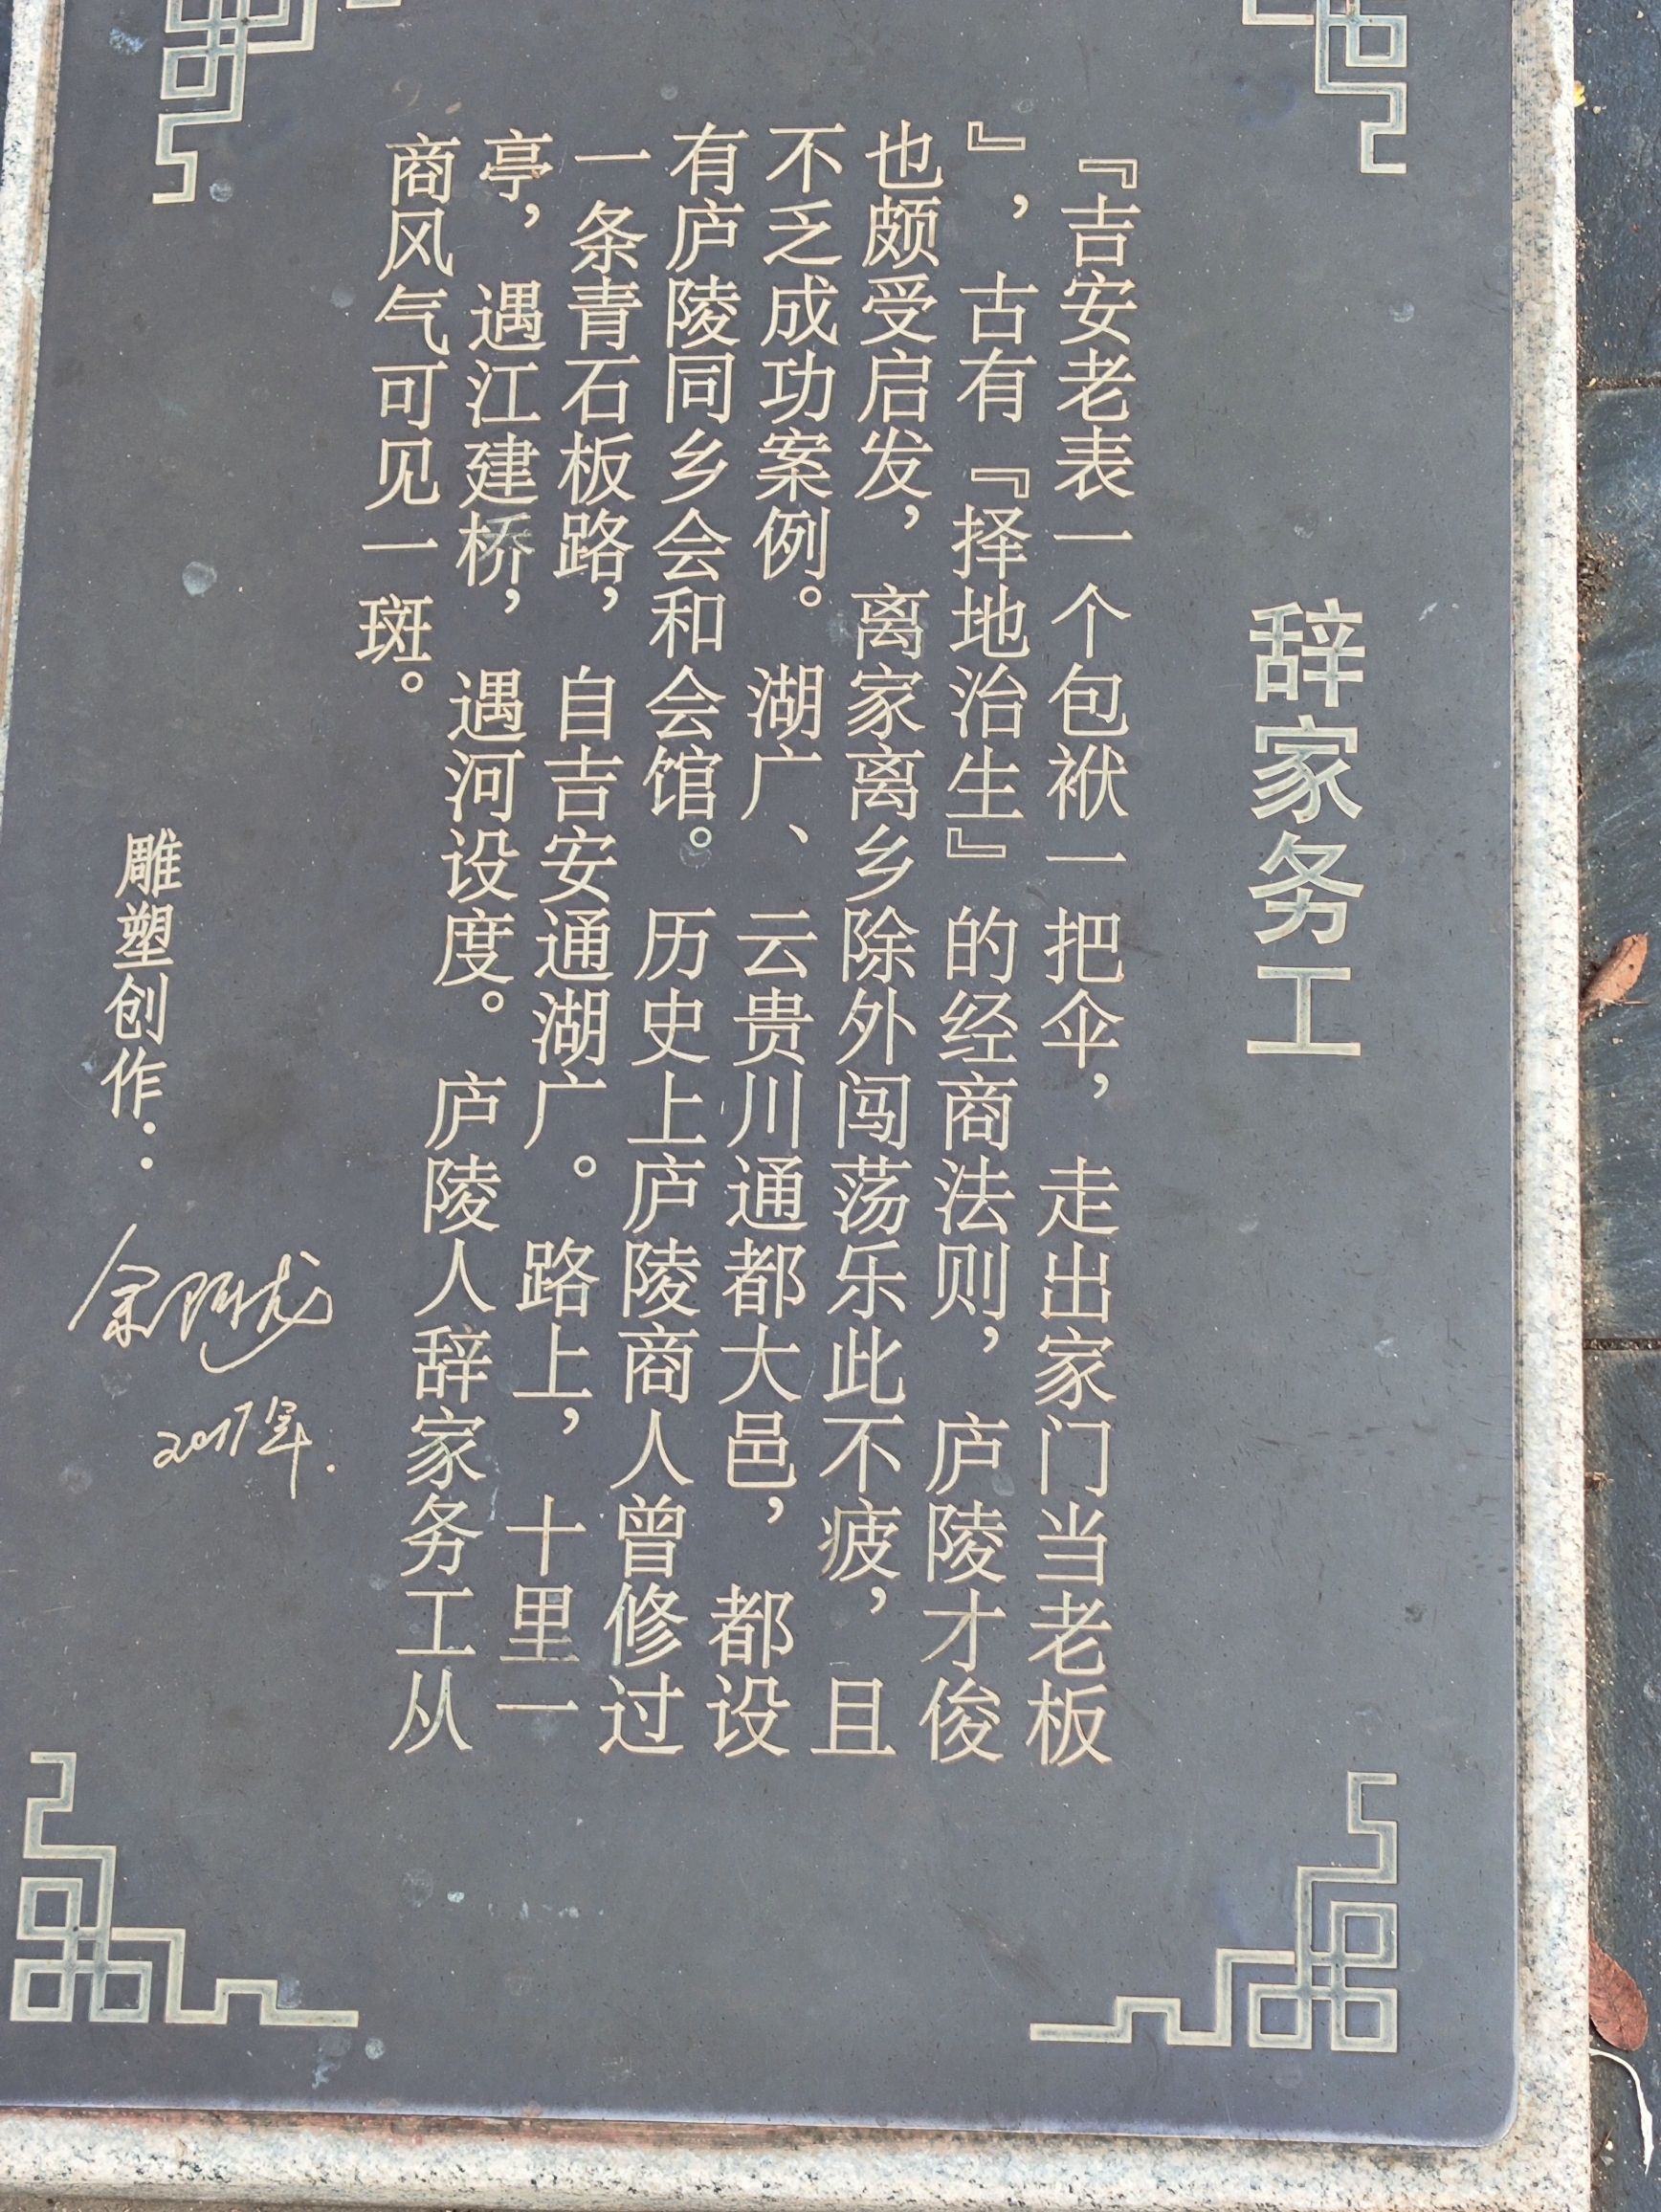 辞家务工
『吉安老表一个包袱一把伞，走出家门当老板
』，古有『择地治生』的经商法则，庐陵才俊
也颇受启发，离家离乡除外闯荡乐此不疲，且
不乏成功案例。湖广、云贵川通都大邑，都设
有庐陵同乡会和会馆。历史上庐陵商人曾修过
一条青石板路，自吉安通湖广。路上，十里一
亭，遇江建桥，遇河设度。庐陵人辞家务工从
商风气可见一斑。
雕塑创作：
2017年.